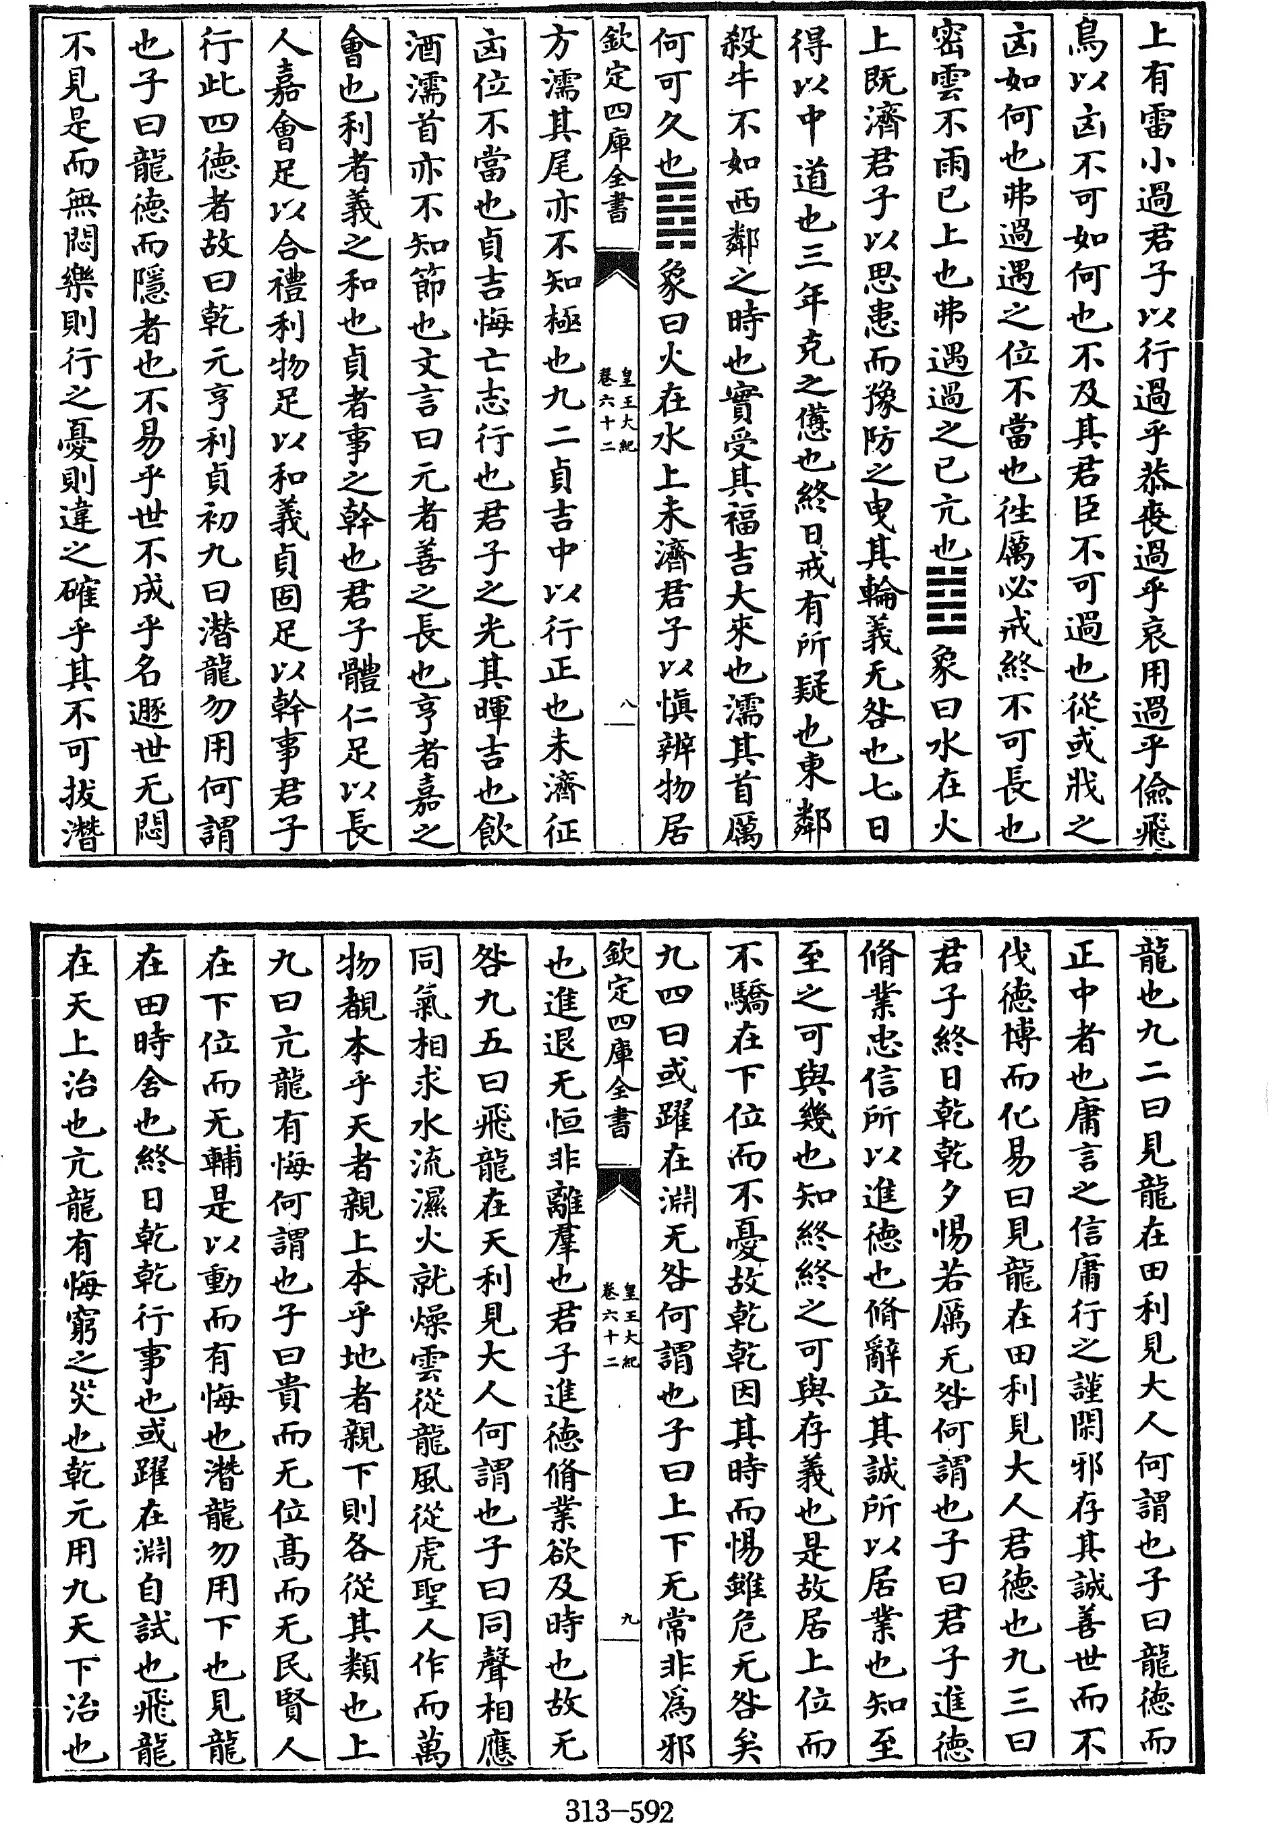 上有雷小過君子以行過乎恭喪過乎哀用過乎儉飛
鳥以凶不可如何也不及其君臣不可過也從或戕之
凶如何也弗過遇之位不當也徃厲必戒終不可長也
密雲不雨已上也弗遇過之已亢也䷾象曰水在火
上既濟君子以思患而豫防之曳其輪義无咎也七日
得以中道也三年克之憊也終日戒有所疑也東鄰
殺牛不如西鄰之時也實受其福吉大來也濡其首厲
何可久也䷿象曰火在水上未濟君子以慎辨物居
欽定四庫全書
皇王大紀
卷六十二
八
方濡其尾亦不知極也九二貞吉中以行正也未濟征
凶位不當也貞吉悔亡志行也君子之光其暉吉也飲
酒濡首亦不知節也文言曰元者善之長也亨者嘉之
會也利者義之和也貞者事之幹也君子體仁足以長
人嘉會足以合禮利物足以和義貞固足以幹事君子
行此四德者故曰乾元亨利貞初九曰潛龍勿用何謂
也子曰龍德而隱者也不易乎世不成乎名遯世无悶
不見是而無悶樂則行之憂則違之確乎其不可拔潛
龍也九二曰見龍在田利見大人何謂也子曰龍德而
正中者也庸言之信庸行之謹閑邪存其誠善世而不
伐德博而化易曰見龍在田利見大人君德也九三曰
君子終日乾乾夕惕若厲无咎何謂也子曰君子進德
脩業忠信所以進德也脩辭立其誠所以居業也知至
至之可與幾也知終終之可與存義也是故居上位而
不驕在下位而不憂故乾乾因其時而惕雖危无咎矣
九四曰或躍在淵无咎何謂也子曰上下无常非爲邪
欽定四庫全書
皇王大紀
卷六十二
九
也進退无恒非離羣也君子進德脩業欲及時也故无
咎九五曰飛龍在天利見大人何謂也子曰同聲相應
同氣相求水流濕火就燥雲從龍風從虎聖人作而萬
物覩本乎天者親上本乎地者親下則各從其類也上
九曰亢龍有悔何謂也子曰貴而无位高而无民賢人
在下位而无輔是以動而有悔也潛龍勿用下也見龍
在田時舍也終日乾乾行事也或躍在淵自試也飛龍
在天上治也亢龍有悔窮之災也乾元用九天下治也
313-592